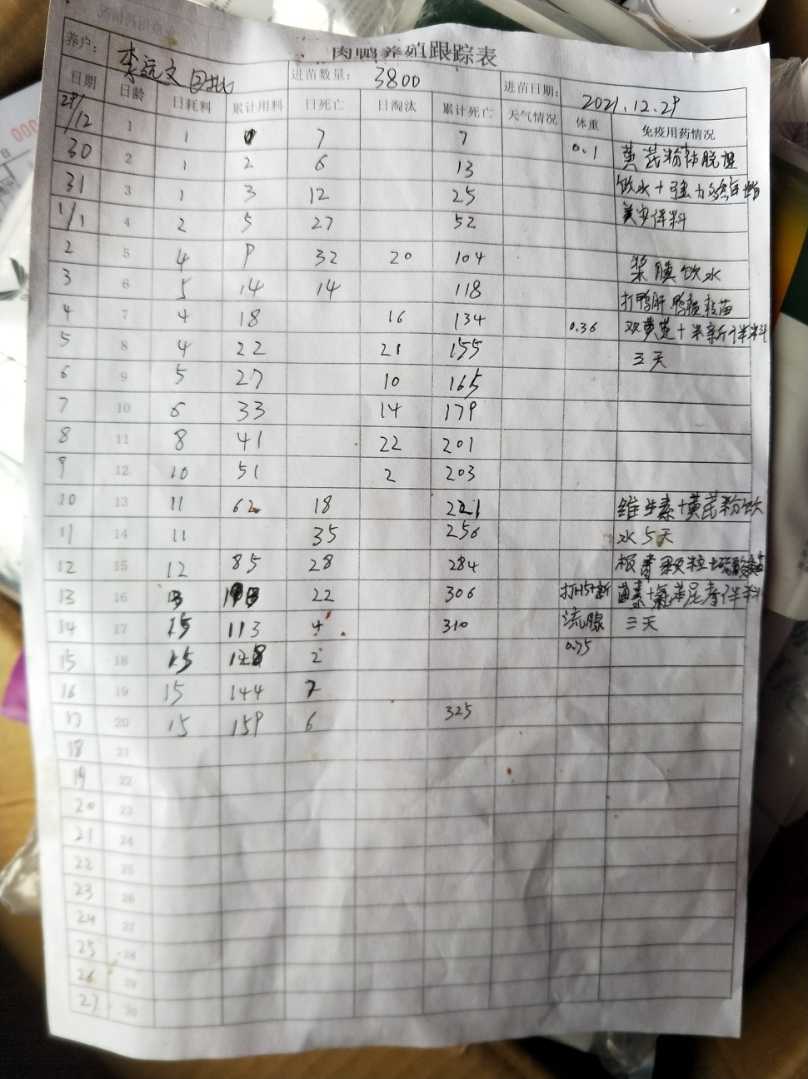 肉鸭养殖跟踪表
养户: 李远文 进苗数量: 3800 进苗日期: 2021.12.29
日期 日龄 日耗料 累计用料 日死亡 日淘汰 累计死亡 天气情况 体重 免疫用药情况
29/12 1 1 7 7 0.1 黄芪粉
30 2 1 2 6 13 饮水+强力
31 3 1 3 12 25
1/1 4 2 5 27 52
2 5 4 9 32 20 104 浆膜饮水
3 6 5 14 14 118 打鸭肝鸭瘟疫苗
4 7 4 18 16 134 0.36 双黄芪+
5 8 4 22 21 155 三天
6 9 5 27 10 165
7 10 6 33 14 179
8 11 8 41 22 201
9 12 10 51 2 203
10 13 11 62 18 221 维生素+黄芪粉饮
11 14 11 35 256 水5天
12 15 12 85 28 284 板青颗粒+
13 16 13 22 306 打H5+新 菌素+氟苯尼考伴料
14 17 15 113 4 310 流腺 三天
15 18 15 128 2 0.75
16 19 15 144 7
17 20 15 159 6 325
18 21
19 22
20 23
21 24
22 25
23 26
24 27
25 28
26 29
27 30